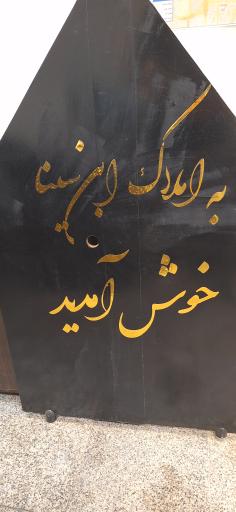 به املاک ابن سینا
خوش آمدید